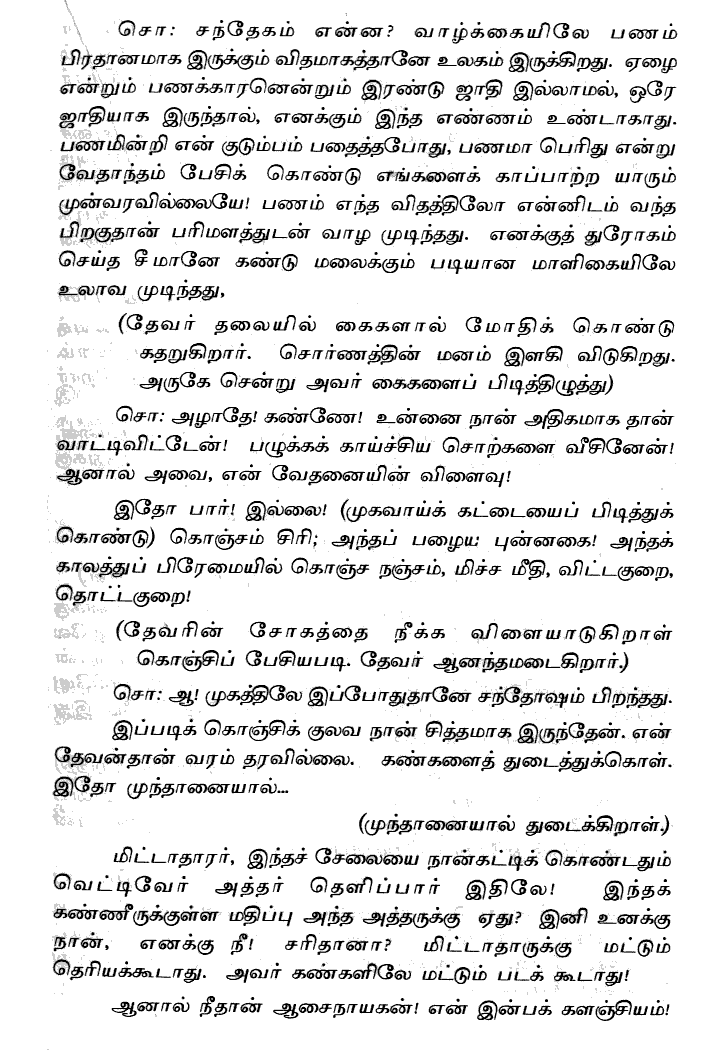 சொ: சந்தேகம் என்ன? வாழ்க்கையிலே பணம்
பிரதானமாக இருக்கும் விதமாகத்தானே உலகம் இருக்கிறது. ஏழை
என்றும் பணக்காரனென்றும் இரண்டு ஜாதி இல்லாமல், ஒரே
ஜாதியாக இருந்தால், எனக்கும் இந்த எண்ணம் உண்டாகாது.
பணமின்றி என் குடும்பம் பதைத்தபோது, பணமா பெரிது என்று
வேதாந்தம் பேசிக் கொண்டு எங்களைக் காப்பாற்ற யாரும்
முன்வரவில்லையே! பணம் எந்த விதத்திலோ என்னிடம் வந்த
பிறகுதான் பரிமளத்துடன் வாழ முடிந்தது. எனக்குத் துரோகம்
செய்த சீமானே கண்டு மலைக்கும் படியான மாளிகையிலே
உலாவ முடிந்தது,
(தேவர் தலையில் கைகளால் மோதிக் கொண்டு
கதறுகிறார். சொர்ணத்தின் மனம் இளகி விடுகிறது.
அருகே சென்று அவர் கைகளைப் பிடித்திழுத்து)
சொ: அழாதே! கண்ணே! உன்னை நான் அதிகமாக தான்
வாட்டிவிட்டேன்! பழுக்கக் காய்ச்சிய சொற்களை வீசினேன்!
ஆனால் அவை, என் வேதனையின் விளைவு!
இதோ பார்! இல்லை! (முகவாய்க் கட்டையைப் பிடித்துக்
கொண்டு) கொஞ்சம் சிரி; அந்தப் பழைய புன்னகை! அந்தக்
காலத்துப் பிரேமையில் கொஞ்ச நஞ்சம், மிச்ச மீதி, விட்டகுறை,
தொட்டகுறை!
(தேவரின் சோகத்தை நீக்க விளையாடுகிறாள்
கொஞ்சிப் பேசியபடி. தேவர் ஆனந்தமடைகிறார்.)
சொ: ஆ! முகத்திலே இப்போதுதானே சந்தோஷம் பிறந்தது.
இப்படிக் கொஞ்சிக் குலவ நான் சித்தமாக இருந்தேன். என்
தேவன்தான் வரம் தரவில்லை. கண்களைத் துடைத்துக்கொள்.
இதோ முந்தானையால்...
(முந்தானையால் துடைக்கிறாள்.)
மிட்டாதாரர், இந்தச் சேலையை நான்கட்டிக் கொண்டதும்
வெட்டிவேர் அத்தர் தெளிப்பார் இதிலே! இந்தக்
கண்ணீருக்குள்ள மதிப்பு அந்த அத்தருக்கு ஏது? இனி உனக்கு
நான், எனக்கு நீ! சரிதானா? மிட்டாதாருக்கு மட்டும்
தெரியக்கூடாது. அவர் கண்களிலே மட்டும் படக் கூடாது!
ஆனால் நீதான் ஆசைநாயகன்! என் இன்பக் களஞ்சியம்!